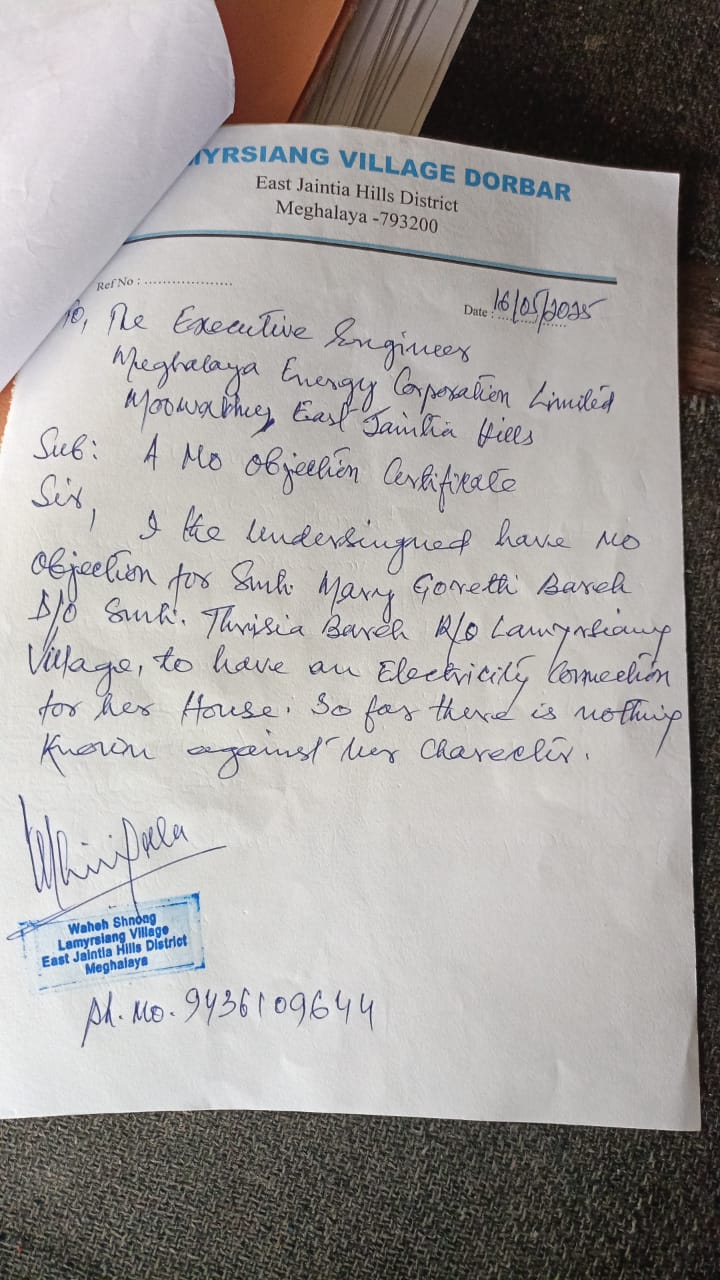 MYRSIANG VILLAGE DORBAR
East Jaintia Hills District
Meghalaya -793200
Ref No : ...................
Date : 16/05/2025
To, The Executive Engineer
Meghalaya Energy Corporation Limited
East Jaintia Hills
Sub: A No Objection Certificate
Sir,
I the undersingued have no
objection for Smti. Mary Gorethi Bareh
D/O Smti. Thrisia Bareh R/o Lamyrsiang
Village, to have an Electricity Connection
for her House. So far there is nothing
Known against her Charecter.
Waheh Shnong
Lamyrsiang Village
East Jaintia Hills District
Meghalaya
Ph. No. 9436109644